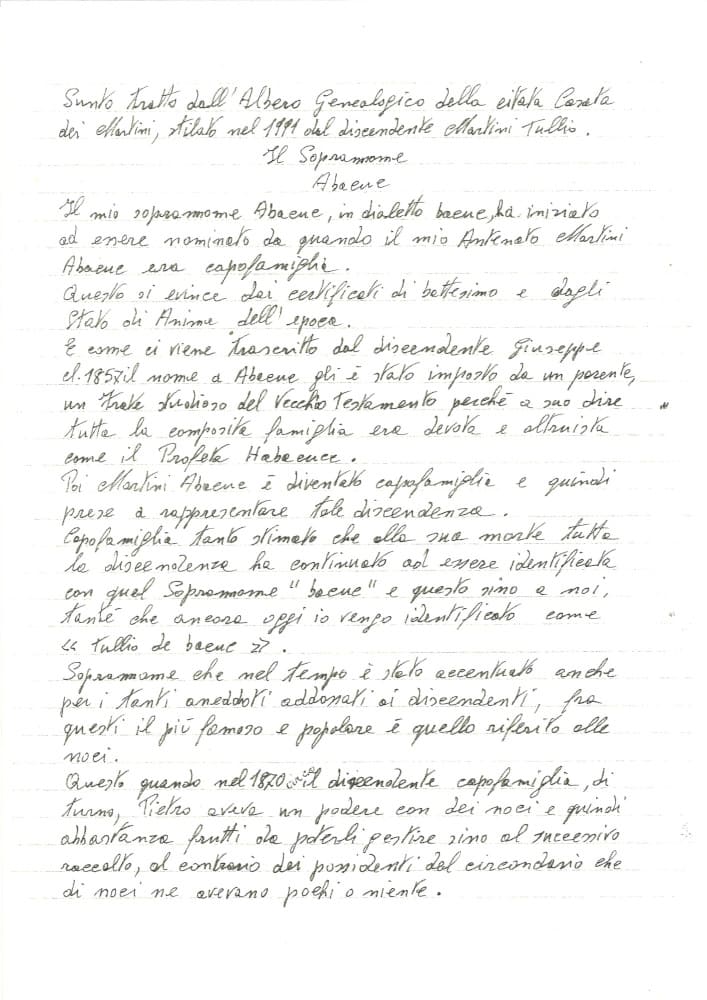 Sunto tratto dall'Albero Genealogico della citata Casata
dei Martini, stilato nel 1991 dal discendente Martini Tullio.
Il Soprannome
Abacuc
Il mio soprannome Abacuc, in dialetto bacuc, ha iniziato
ad essere nominato da quando il mio Antenato Martini
Abacuc era capofamiglia.
Questo si evince dai certificati di battesimo e dagli
Stato di Anime dell'epoca.
E come ci viene trascritto dal discendente Giuseppe
cl. 1857 il nome a Abacuc gli è stato imposto da un parente,
un frate studioso del Vecchio Testamento perchè a suo dire
tutta la composita famiglia era devota e altruista
come il Profeta Habacucc.
Poi Martini Abacuc è diventato capofamiglia e quindi
prese a rappresentare tale discendenza.
Capofamiglia tanto stimato che alla sua morte tutta
la discendenza ha continuato ad essere identificata
con quel Soprannome "bacuc" e questo sino a noi,
tantè che ancora oggi io vengo identificato come
« Tullio de bacuc ».
Soprannome che nel tempo è stato accentuato anche
per i tanti aneddoti addossati ai discendenti, fra
questi il più famoso e popolare è quello riferito alle
noci.
Questo quando nel 1870 circa il discendente capofamiglia, di
turno, Pietro aveva un podere con dei noci e quindi
abbastanza frutti da poterli gestire sino al successivo
raccolto, al contrario dei possidenti del circondario che
di noci ne avevano pochi o niente.